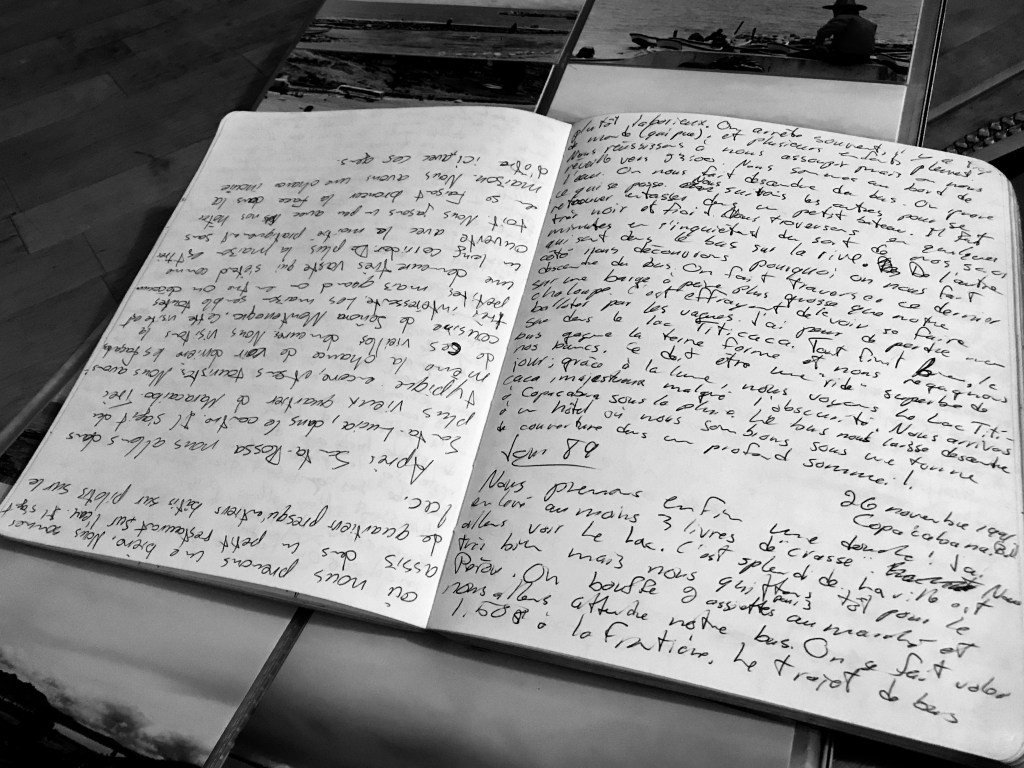 où nous prenons une bière. Nous sommes
assis dans un petit restaurant sur l'eau. Il s'agit
de quartiers presqu'entiers bâtis sur pilotis sur le
lac.
Après Santa-Rossa nous allons dans
Santa-Lucia, dans le centre. Il s'agit du
plus vieux quartier de Maracaibo. Très
typique encore, et sans touristes. Nous avons
même la chance de voir derrière les façades
de ces vieilles demeures. Nous visitons la
cuisine de Señora Montenegro. Cette visite est
très intéressante. Les maisons semble toutes
petites, mais quand on entre on découvre
une demeure très vaste qui s'étend comme
un long corridor. De plus la maison est
ouverte avec la
tout. Nous jasons un peu avec nos hôtes
en se faisant bronzer la face dans la
maison. Nous avons une chance inouïe
d'être ici, avec ces gens.
plutôt laborieux. On arrête souvent, il y a
du monde (pai pue), et plusieurs enfants pleurent.
Nous réussissons à nous assoupir mais on nous
réveille vers 23h00. Nous sommes au bord de
l'eau. On nous fait descendre du bus. On
ce qui se passe. Nous suivons les autres pour se
retrouver entassé dans un petit bateau. Il fait
très noir et froid. Nous traversons en quelques
minutes en s'inquiétant du sort de nos sacs
qui sont dans le bus sur la rive. De l'autre
côté nous découvrons pourquoi on nous fait
descendre du bus. On fait traverser ce dernier
sur une barge à peine plus grosse que notre
chaloupe. C'est effrayant de le voir se faire
balloter par les vagues. J'ai peur de perdre mon
sac dans le lac Titicaca. Tout finit bien, le
bus gagne la terre ferme et nous regagnons
nos bancs. Ce doit être une "ride" superbe de
jour; grâce à la lune, nous voyons le Lac Titi-
caca majestueux malgré l'obscurité. Nous arrivons
à Copacabana sous la pluie. Le bus nous laisse descendre
à un hôtel où nous sombrons sous une tonne
de couverture dans un profond sommeil!
Jour 89
26 novembre
Copacabana, Bol
Nous prenons enfin une douche! J'ai
enlevé au moins 3 livres de crasse. Nous
allons voir le lac. C'est splendide, la ville est
très bien mais nous quittons tôt pour le
Pérou. On bouffe 2 assiettes au marché et
nous allons attendre notre bus. On se fait voler
1.29$ à la frontière. Le trajet de bus